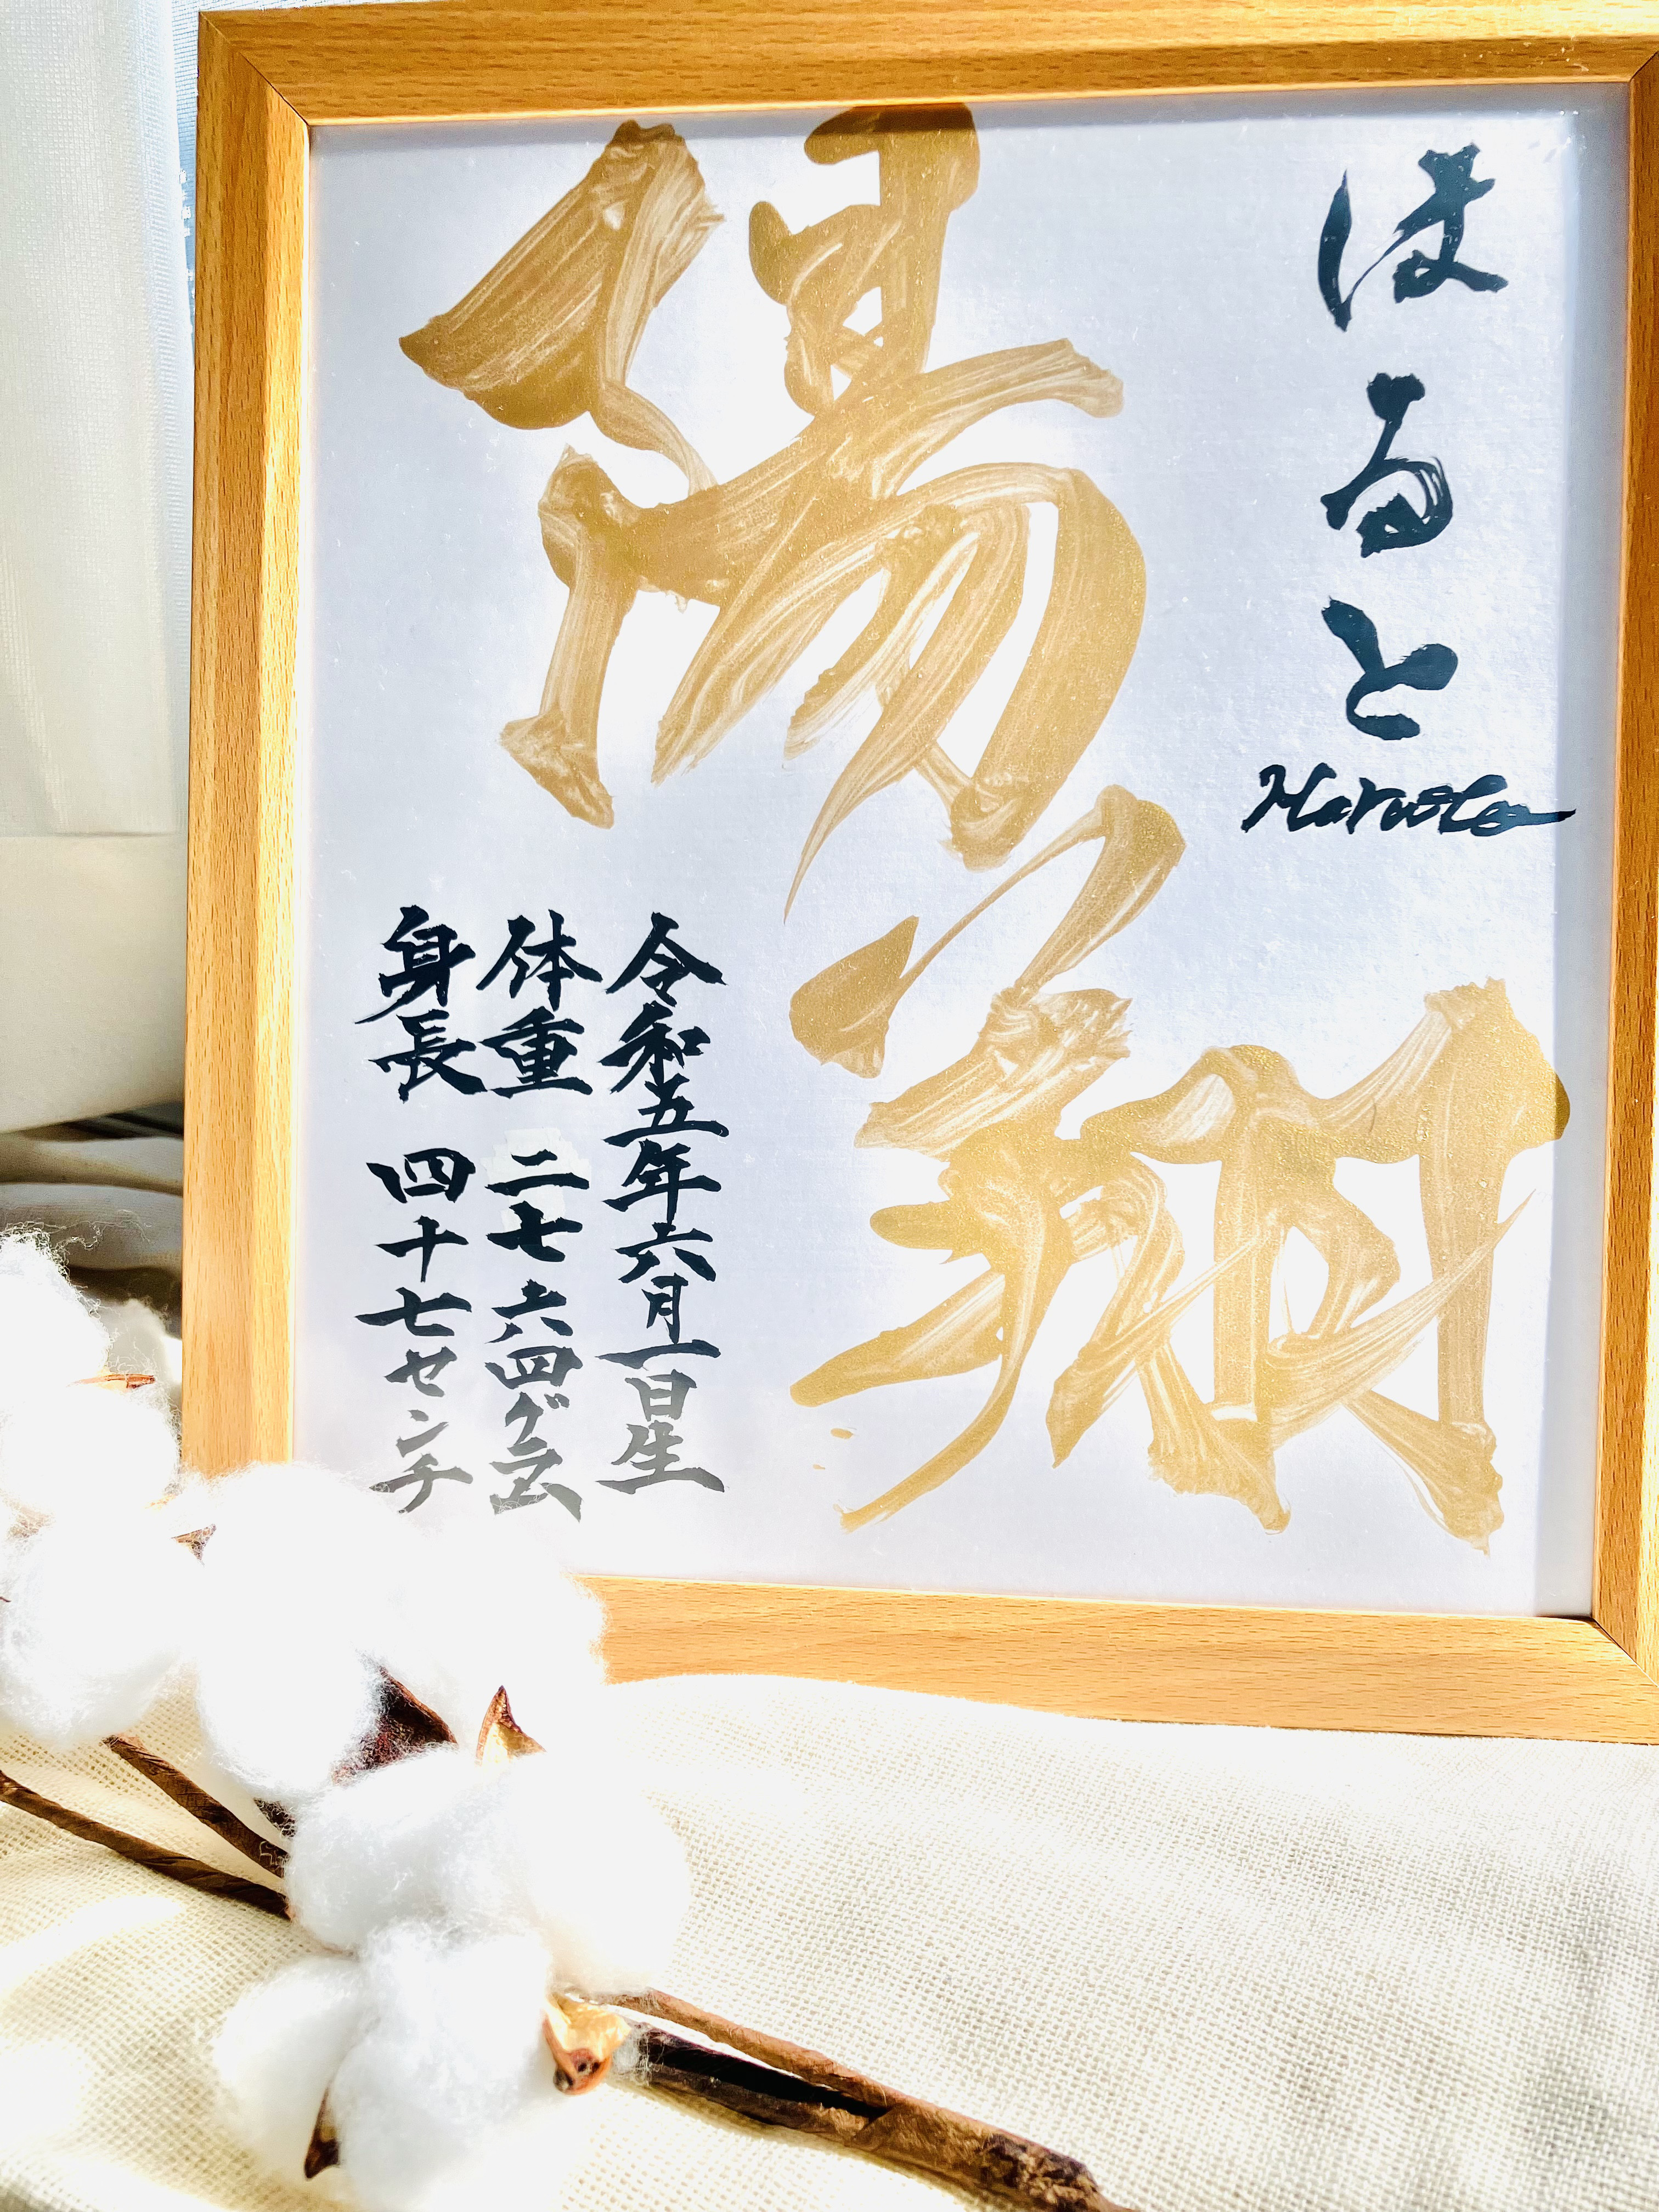 はると
Haruto
陽翔
令和五年六月一日生
体重 二七六四グラム
身長 四十七センチ